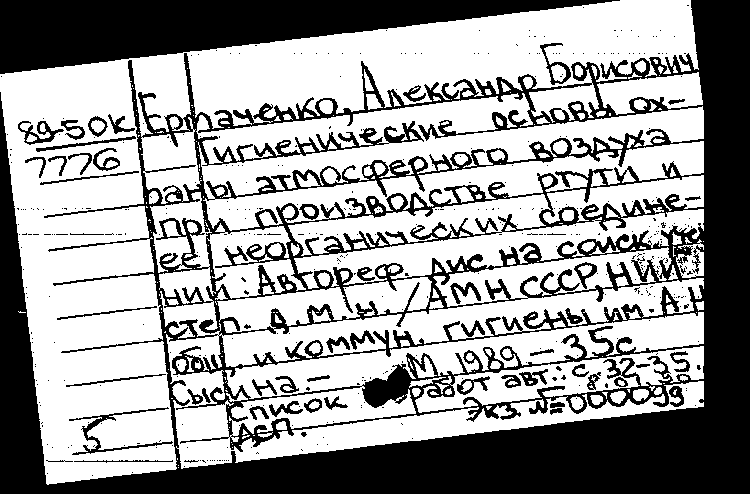 89-50К Ермаченко, Александр Борисович
7776 Гигиенические основы ох-
раны атмосферного воздуха
при производстве ртути и
ее неорганических соедине-
ний: Автореф. дис. на соиск. учен
степ. д.м.н. / АМН СССР, НИИ
общ. и коммун. гигиены им. А.Н
Сысина. – М., 1989. – 35с.
Список работ авт.: с. 32-35.
5 ДСП. Экз. №000099.